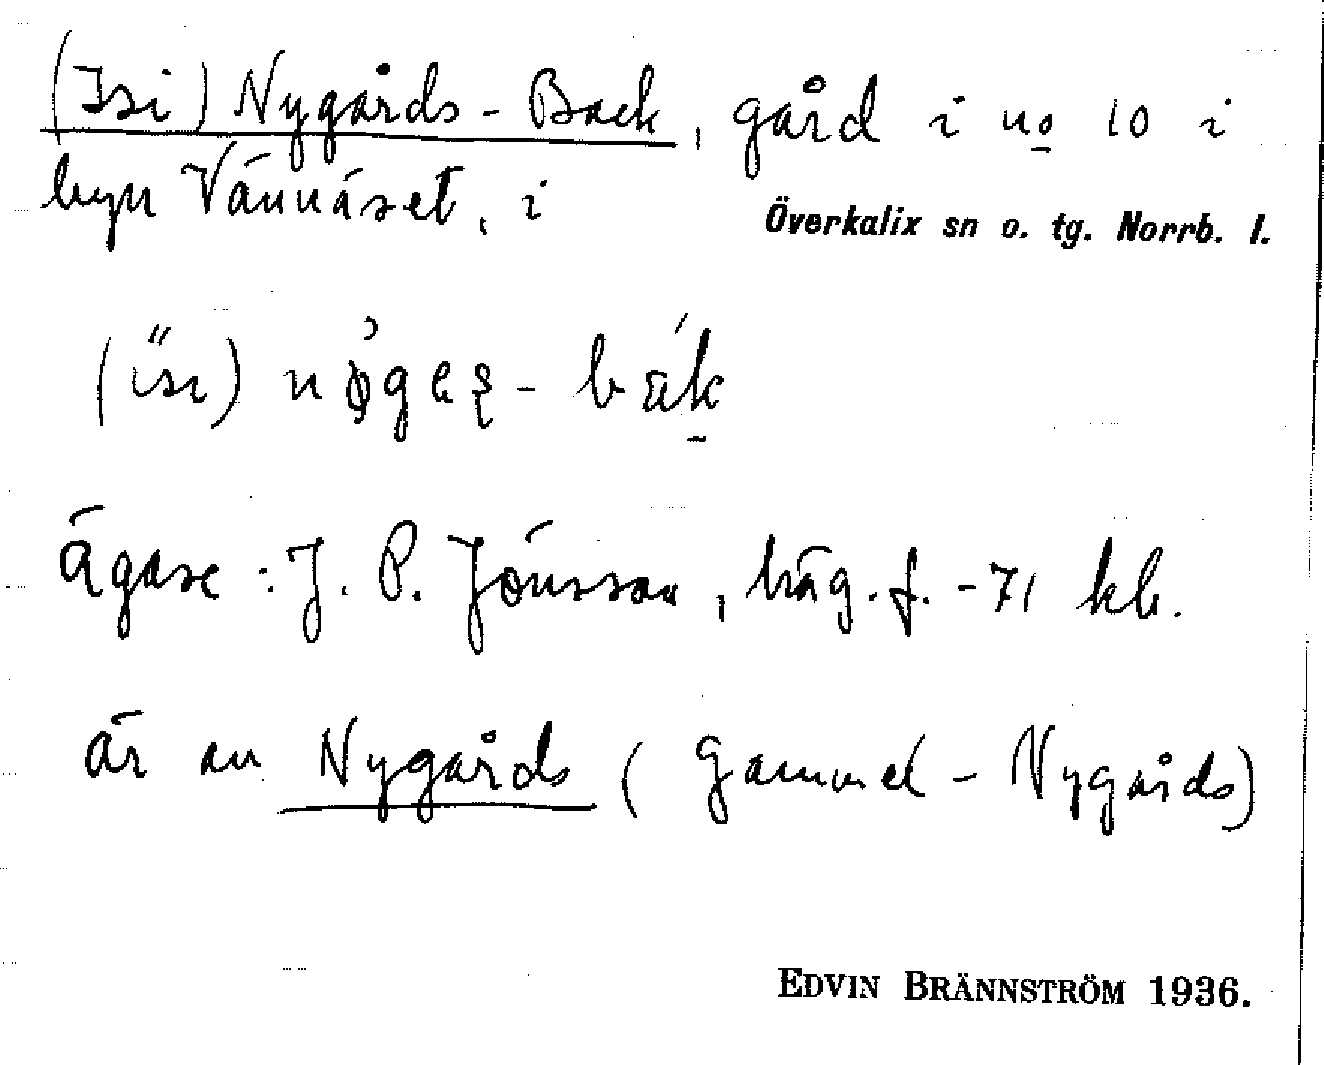 (Isi) Nygårds-Back, gård i no 10 i
byn Vännäset, i
Överkalix sn o. tg. Norrb. l.
ägare: J. P. Jönsson, bäg. f. -71 kb.
är av Nygårds (Gammel-Nygårds)
EDVIN BRÄNNSTRÖM 1936.